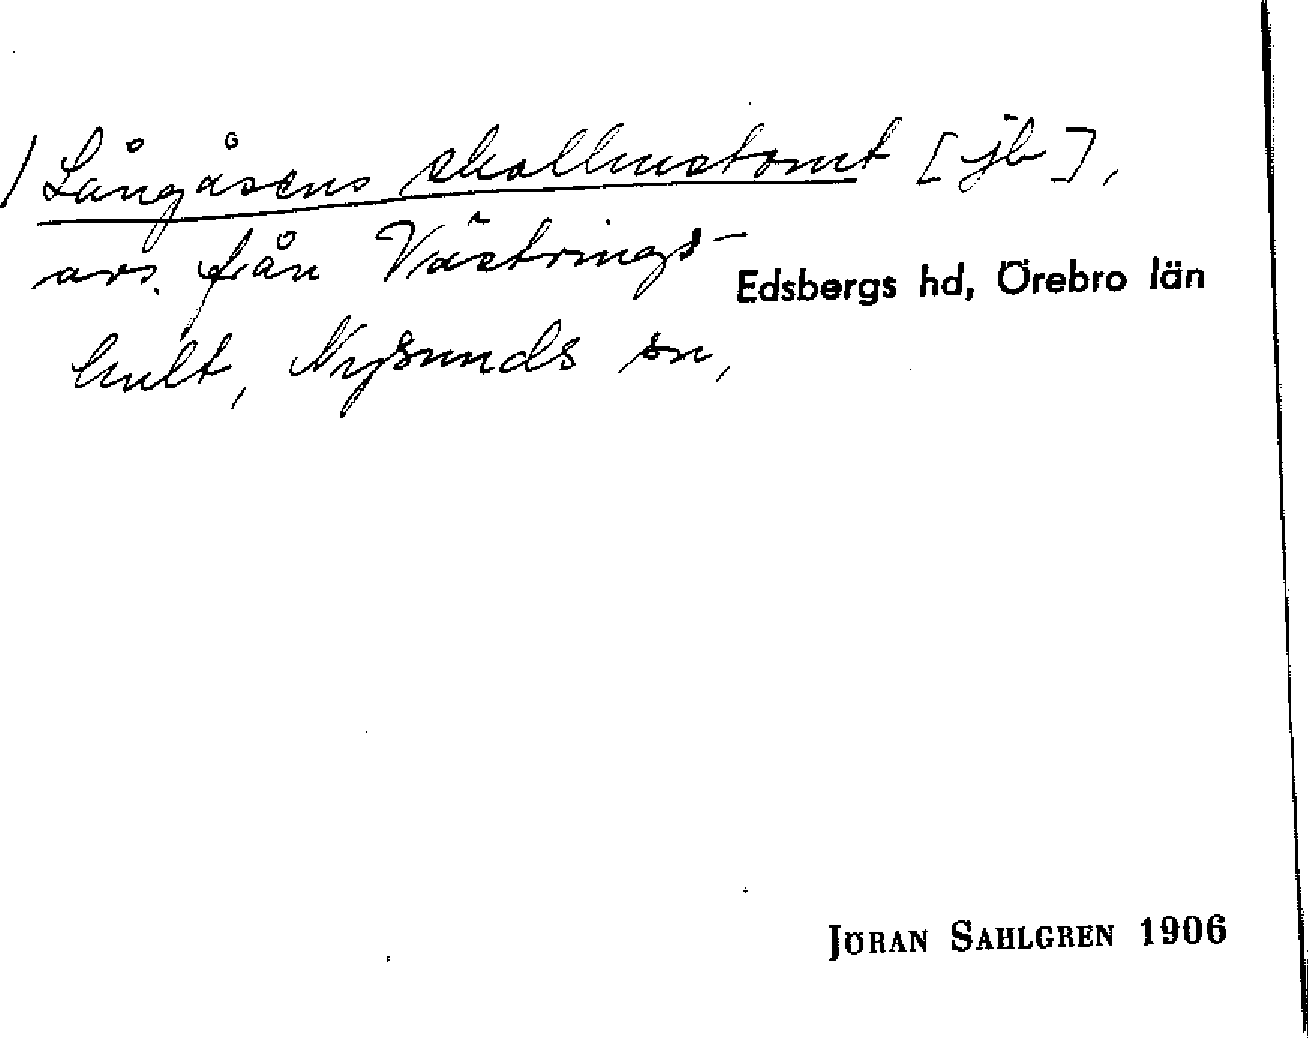 / Långåsens skolhustomt [jb],
avs. från Västrings-
hult, Nysunds sn,
Edsbergs hd, Örebro län
JÖRAN SAHLGREN 1906